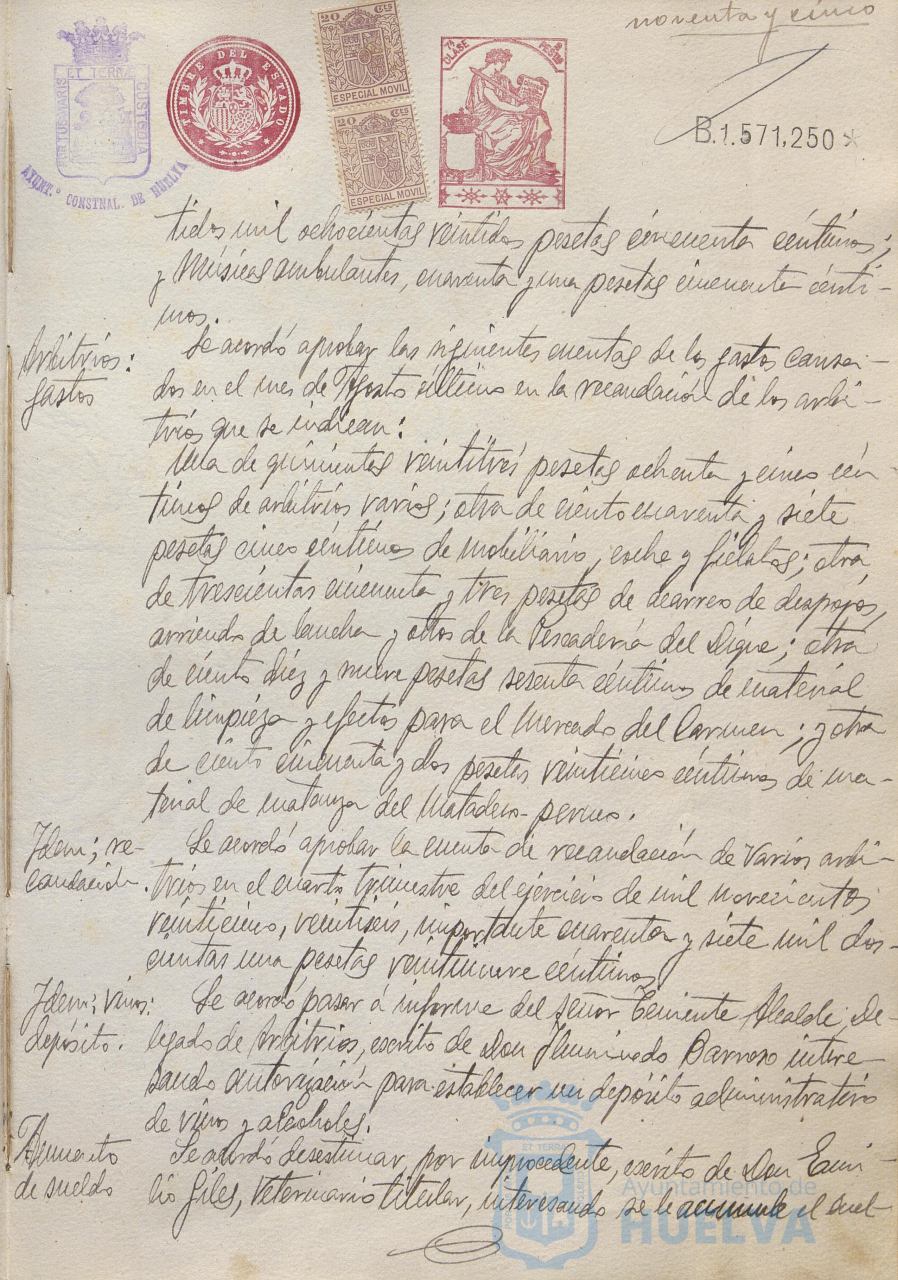 noventa y cinco
ET TERRA
PORTUS MARIS
CUSTODIA
AYUNT.º CONSTNAL. DE HUELVA
TIMBRE DEL ESTADO
20 Cts
ESPECIAL MOVIL
20 Cts
ESPECIAL MOVIL
7ª CLASE
PESETAS
B.1.571,250
tidos mil ochocientas veintidos pesetas cincuenta céntimos;
y Músicas ambulantes, cuarenta y una pesetas cincuenta cénti-
mos.
Arbitrios:
gastos
Se acordó aprobar las siguientes cuentas de los gastos causa-
dos en el mes de Agosto último en la recaudación de los arbi-
trios que se indican:
Una de quinientas veintitrés pesetas ochenta y cinco cén-
timos de arbitrios varios; otra de ciento cuarenta y siete
pesetas cinco céntimos de mobiliario, coche y fielatos; otra
de trescientas cincuenta y tres pesetas de acarreo de despojos,
arriendo de lancha y otros de la Pescadería del Dique; otra
de ciento diez y nueve pesetas sesenta céntimos de material
de limpieza y efectos para el Mercado del Carmen; y otra
de ciento cincuenta y dos pesetas veinticinco céntimos de ma-
terial de matanza del Matadero.
Idem; re-
caudación.
Se acordó aprobar la cuenta de recaudación de varios arbi-
trios en el cuarto trimestre del ejercicio de mil novecientos
veinticinco, veintiseis, importante cuarenta y siete mil dos-
cientas una pesetas veintinueve céntimos
Idem; vinos:
depósito.
Se acordó pasar á informe del señor Teniente Alcalde, De-
legado de Arbitrios, escrito de Don Iluminado Barroso intere-
sando autorización para establecer un depósito administrativo
de vinos y alcoholes.
Aumento
de sueldo
Se acordó desestimar, por improcedente, escrito de Don Emi-
lio Giles, Veterinario titular, interesando se le aumente el suel-
ET TERRA
Ayuntamiento de
HUELVA